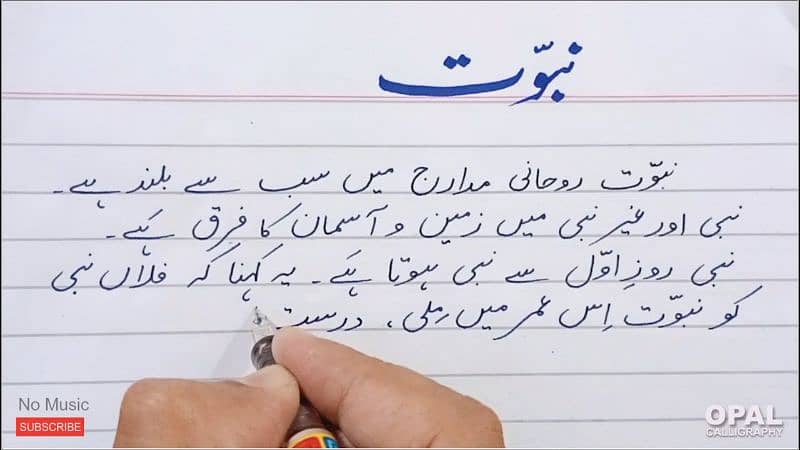 نبوّت
نبوّت روحانی مدارج میں سب سے بلند ہے۔
نبی اور غیر نبی میں زمین و آسمان کا فرق ہَے۔
نبی روزِ اوّل سے نبی ہوتا ہَے۔ یہ کہنا کہ فلاں نبی
کو نبوّت اِس عمر میں مِلی، درست
No Music
SUBSCRIBE
OPAL
CALLIGRAPHY